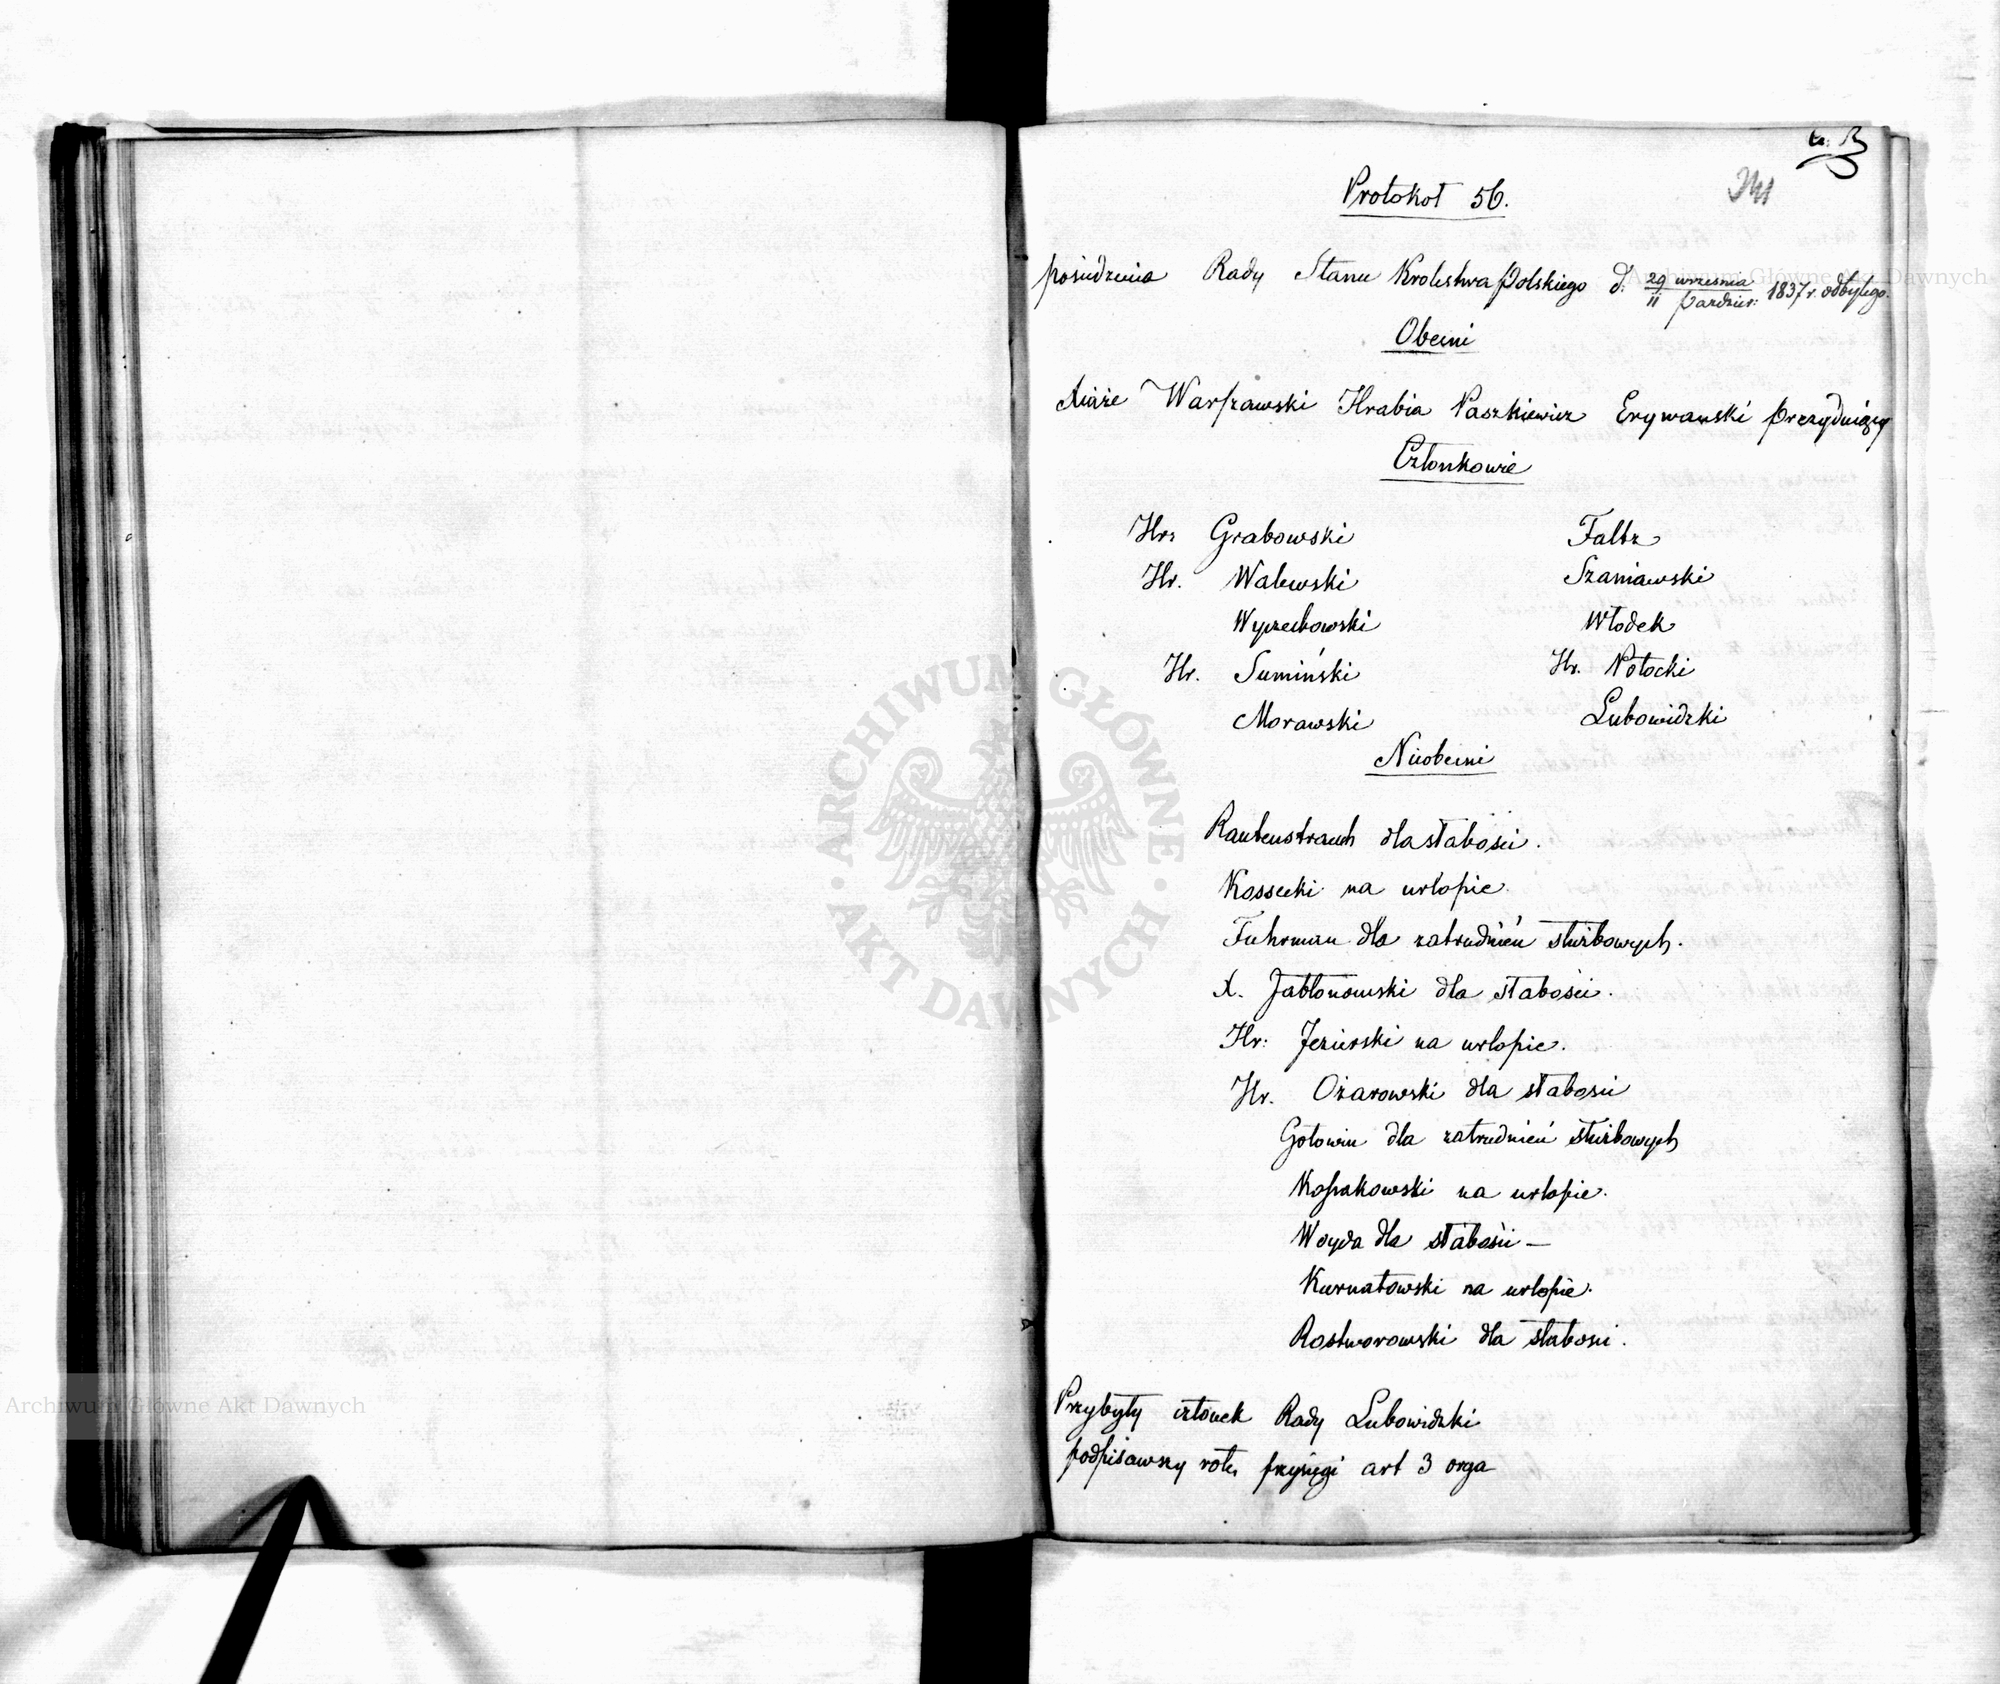 Protokoł 56.
posiedzenia Rady Stanu Krolestwa Polskiego d: 29 wrzesnia / 11 Pazdzier: 1837 r. odbytego.
Obecni
Xiąże Warszawski Hrabia Paszkiewicz Erywanski Prezydujący
Członkowie
Hr: Grabowski Faltz
Hr. Walewski Szaniawski
Wyczechowski Włodek
Hr. Sumiński Hr. Potocki
Morawski Lubowidzki
Nieobecni
Rautenstrauch dla słabości.
Kossecki na urlopie.
Fuhrman dla zatrudnień służbowych.
X. Jabłonowski dla słabości.
Hr: Jezierski na urlopie.
Hr. Ożarowski dla słabości
Gołowin dla zatrudnień służbowych
Kossakowski na urlopie.
Woyda dla słabości —
Kurnatowski na urlopie.
Rostworowski dla słabości.
Przybyły członek Rady Lubowidzki
podpisawszy rotę przysięgi art 3 orga
Archiwum Główne Akt Dawnych
ARCHIWUM GŁÓWNE
AKT DAWNYCH
Archiwum Główne Akt Dawnych